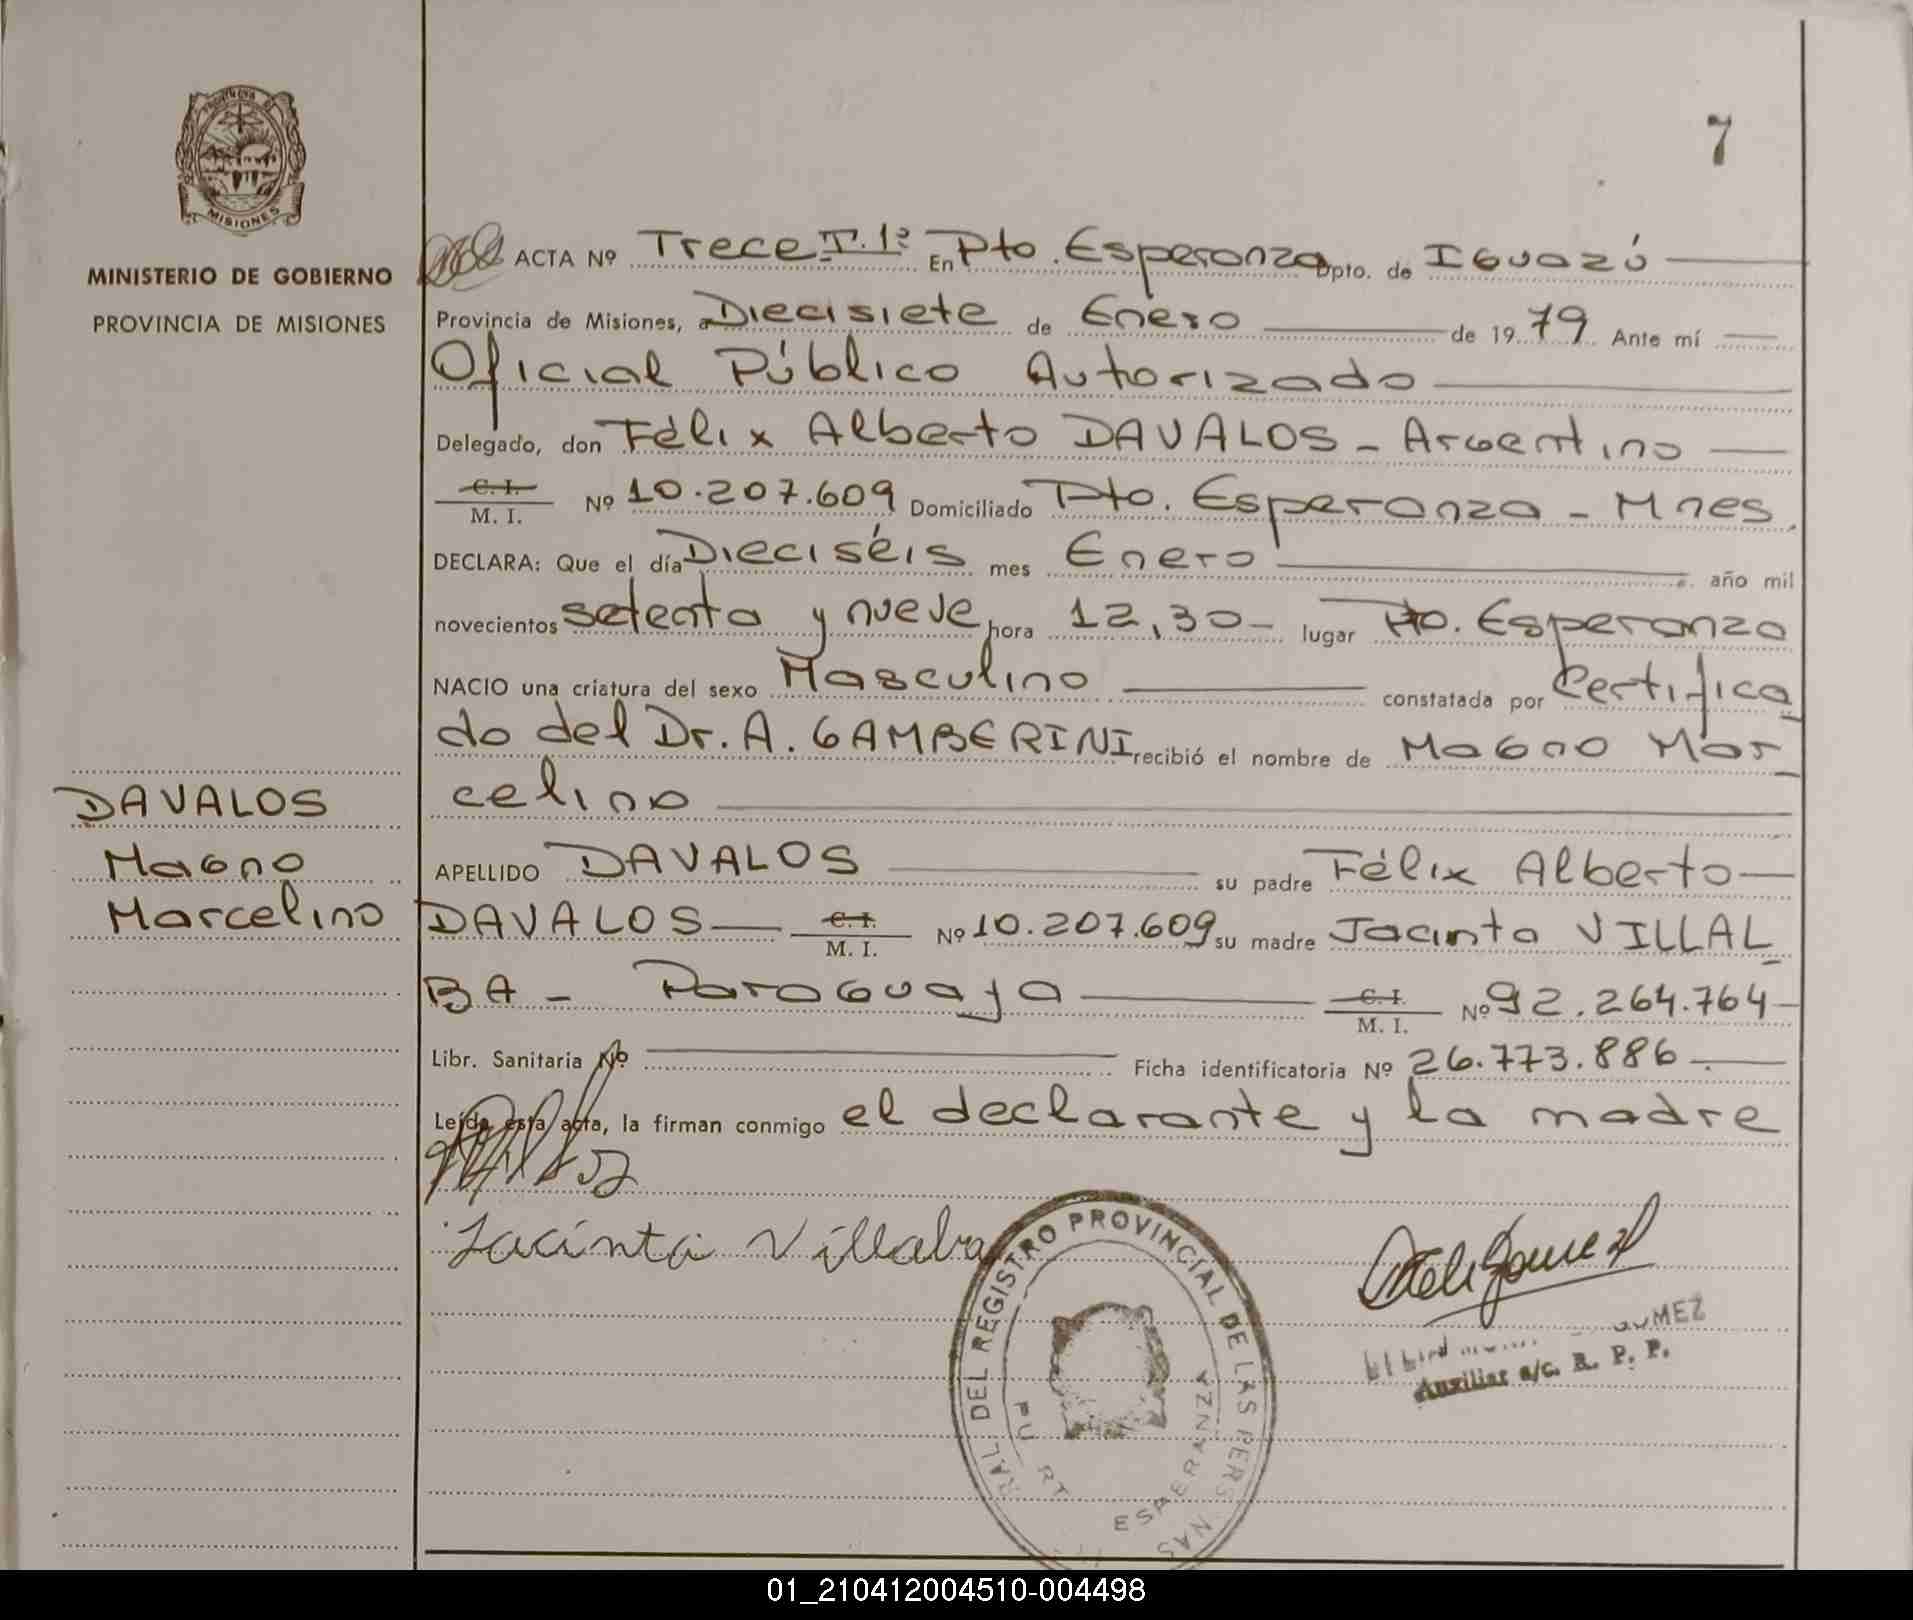 7
PROVINCIA DE
MISIONES
MINISTERIO DE GOBIERNO
PROVINCIA DE MISIONES
ACTA Nº Trece T. 1º En Pto. Esperanza Dpto. de Iguazú
Provincia de Misiones, a Diecisiete de Enero de 19 79 Ante mí
Oficial Público Autorizado
Delegado, don Félix Alberto DAVALOS - Argentino
C. I. / M. I. Nº 10.207.609 Domiciliado Pto. Esperanza - Mnes.
DECLARA: Que el día Dieciséis mes Enero año mil
novecientos setenta y nueve hora 12,30- lugar Pto. Esperanza
NACIO una criatura del sexo Masculino constatada por Certifica
do del Dr. A. GAMBERINI recibió el nombre de Magno Mar-
celino
DAVALOS
Magno
Marcelino
APELLIDO DAVALOS su padre Félix Alberto
DAVALOS C. I. / M. I. Nº 10.207.609 su madre Jacinta VILLAL-
BA - Paraguaya C. I. / M. I. Nº 92.264.764
Libr. Sanitaria Nº Ficha identificatoria Nº 26.773.886
Leída esta acta, la firman conmigo el declarante y la madre
Jacinta Villalba
DEL REGISTRO PROVINCIAL DE LAS PERSONAS
ESPERANZA
Auxiliar a/c. R. P. P.
01_210412004510-004498